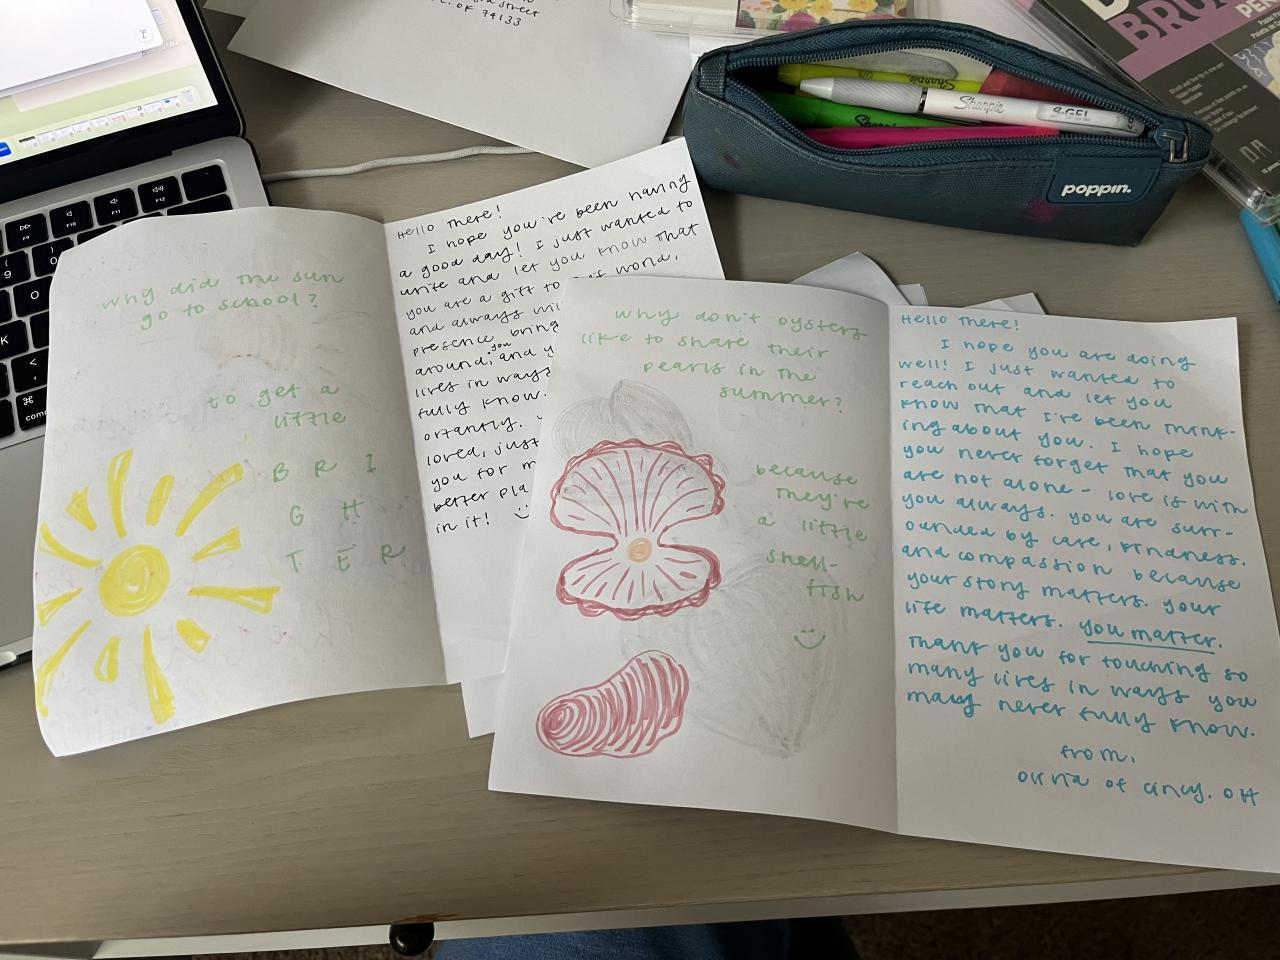 OK 74133
Sharpie
Sharpie
S·GEL
Sharpie
poppin.
why did the sun
go to school?
to get a
little
B R I
G H
T E R
Hello there!
I hope you've been having
a good day! I just wanted to
write and let you know that
you are a gift to world,
and always
presence bring
around, you and
lives in ways
fully know.
ortantly.
loved, just
you for
better pla
in it!
why don't oysters
like to share their
pearls in the
summer?
because
they're
a little
shell-
fish
Hello there!
I hope you are doing
well! I just wanted to
reach out and let you
know that I've been think-
ing about you. I hope
you never forget that you
are not alone - love is with
you always. you are surr-
ounded by care, kindness,
and compassion because
your story matters. your
life matters. you matter.
Thank you for touching so
many lives in ways you
may never fully know.
from,
olivia of cincy, OH